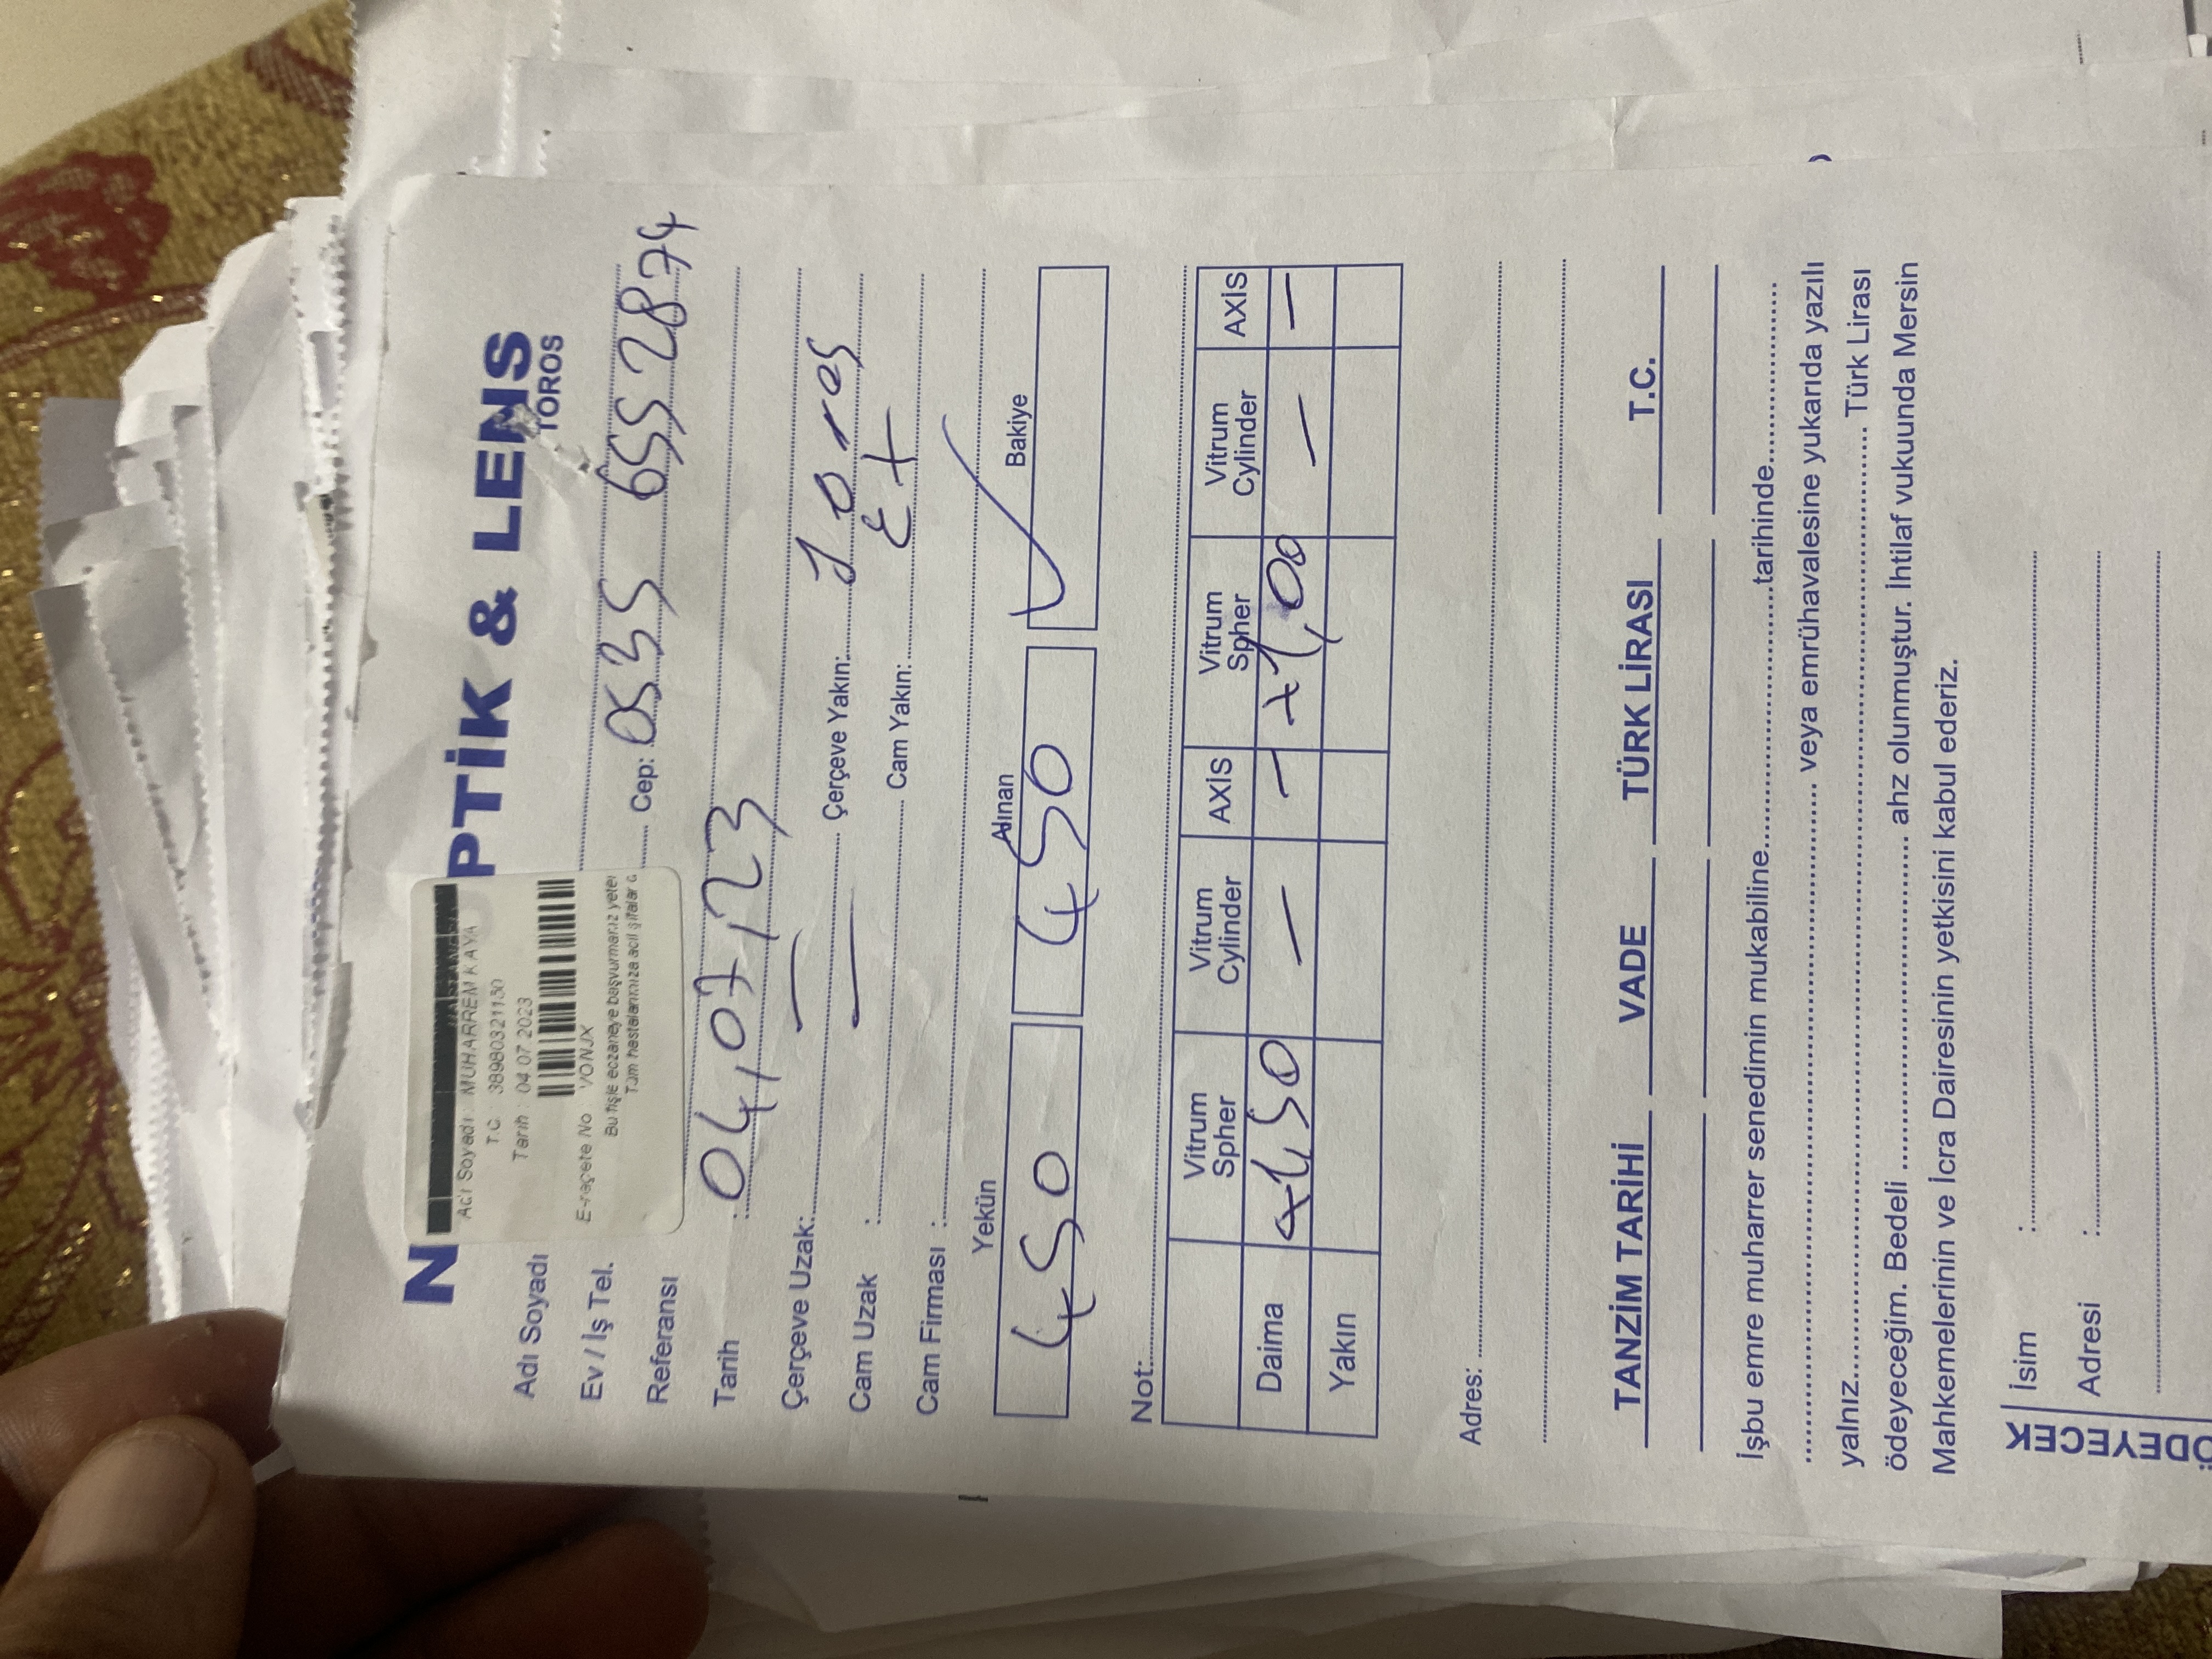 N PTİK & LENS
TOROS
Adı Soyadı : MUHARREM KAYA
T.C. : 38980321130
Tarih : 04.07.2023
E-reçete No VONJX
Bu fişle eczaneye başvurmanız yeter
Tüm hastalarımıza acil şifalar d
Adı Soyadı
Ev / İş Tel.
Cep: 0535 655 2874
Referansı
Tarih : 04,07,23
Çerçeve Uzak: — Çerçeve Yakın:
Cam Uzak : — Cam Yakın:
Cam Firması :
Yekün Alınan Bakiye
450 450 ✓
Not:
Vitrum Spher Vitrum Cylinder AXİS Vitrum Spher Vitrum Cylinder AXİS
Daima +1,50 — — +1,00 — —
Yakın
Adres:
TANZİM TARİHİ VADE TÜRK LİRASI T.C.
İşbu emre muharrer senedimin mukabiline..............................tarihinde....................
.......................................................................... veya emrühavalesine yukarıda yazılı
yalnız....................................................................................................... Türk Lirası
ödeyeceğim. Bedeli .................................... ahz olunmuştur. İhtilaf vukuunda Mersin
Mahkemelerinin ve İcra Dairesinin yetkisini kabul ederiz.
ÖDEYECEK
İsim :
Adresi :